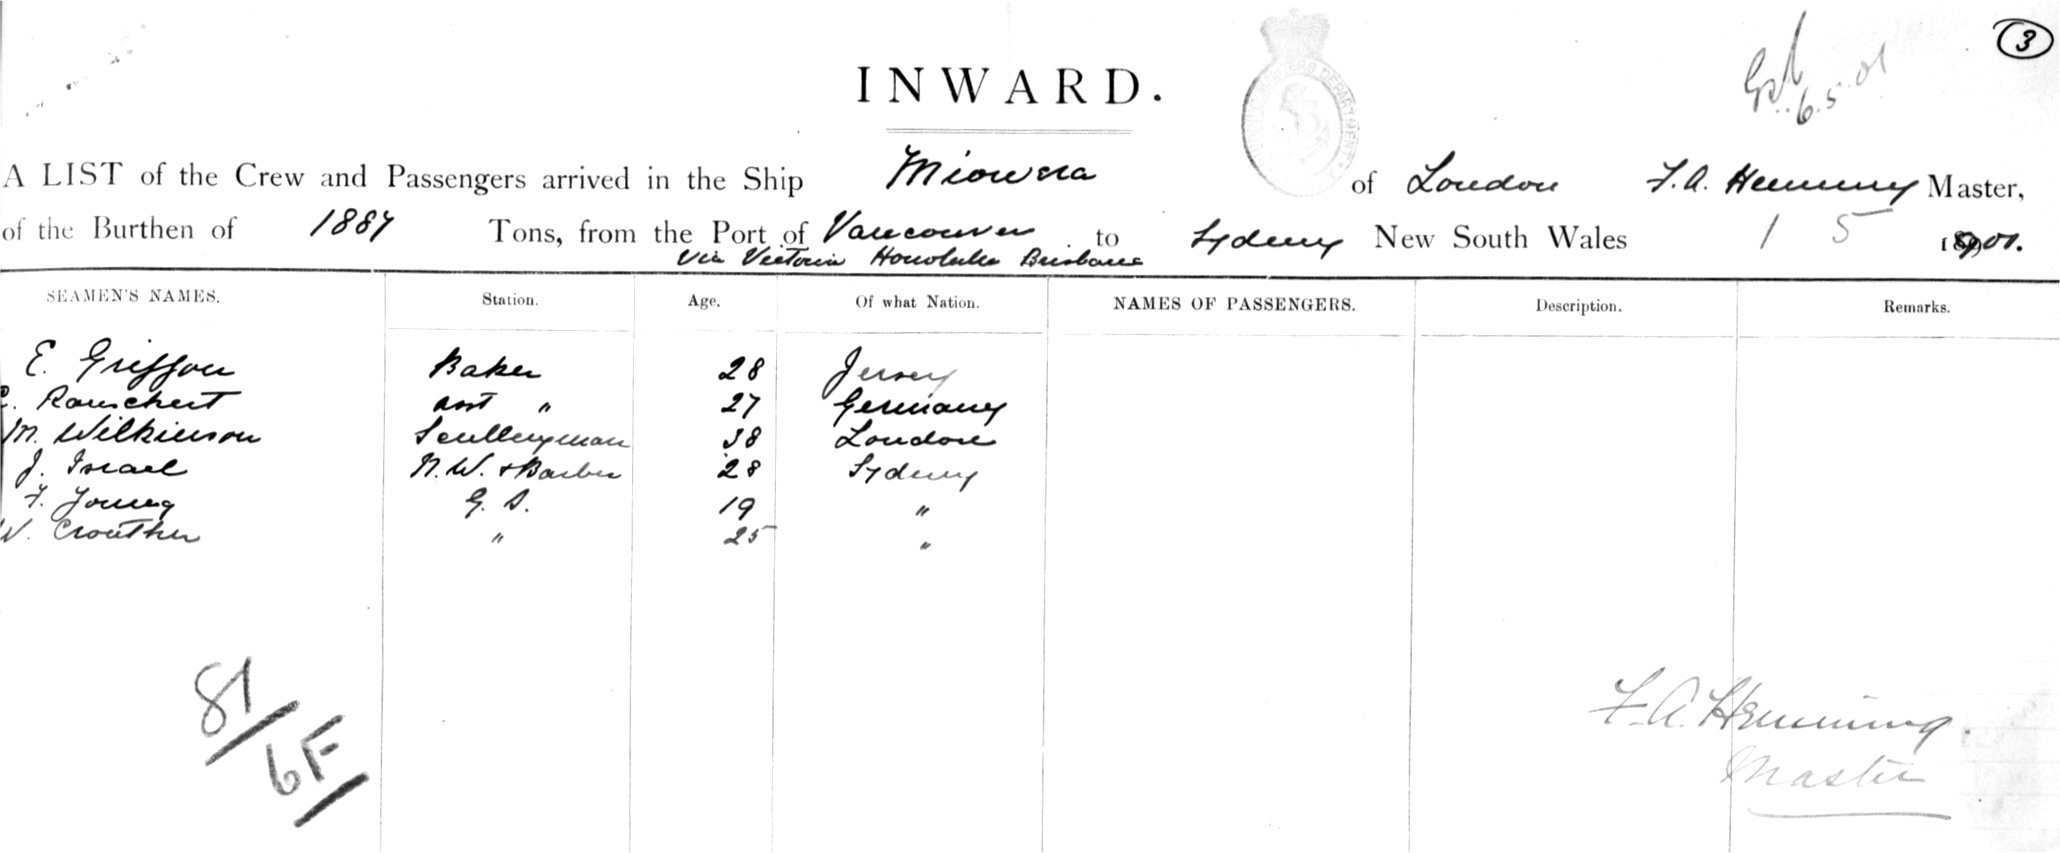 3
6.5.01
INWARD.
A LIST of the Crew and Passengers arrived in the Ship Miowera of London F. A. Hemming Master,
of the Burthen of 1887 Tons, from the Port of Vancouver to Sydney New South Wales 1 5 1901.
Via Victoria Honolulu Brisbane
SEAMEN'S NAMES. Station. Age. Of what Nation. NAMES OF PASSENGERS. Description. Remarks.
E. Griffon Baker 28 Jersey
Rauschert asst " 27 Germany
M. Wilkinson Sculleryman 38 London
J. Israel N. W. & Barber 28 Sydney
F. Young G. S. 19 "
W. Crouther " 25 "
81
6F
F. A. Hemming.
Master